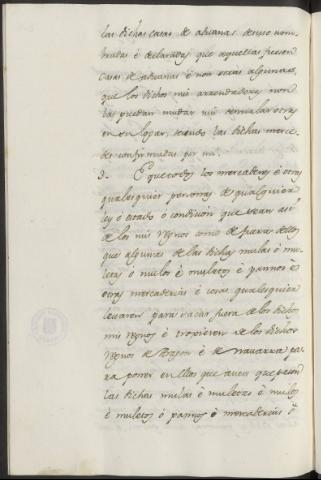 las dichas casas de aduanas de suso nom-
bradas é declaradas que aquellas fuesen
casas de aduanas é non otras algunas,
que los dichos mis arrendadores non
las puedan mudar nin señalar otras
en su logar, seiendo las dichas merce-
des confirmadas por mi.
3. E que todos los mercaderes é otras
qualesquier personas de qualquier
ley é estado ó condicion que sean asi
de los mis regnos como de fuera dellos
que algunas de las dichas mulas ó mu-
letas ó mulos é muletos é pannos é
otras mercaderias é cosas qualesquier
levaren para sacar fuera de los dichos
mis regnos é troxieren de los dichos
regnos de Aragon é de navarra pa-
ra poner en ellos que aues que
las dichas mulas é muletas é mulos
é muletos ó pannos é mercaderias ó